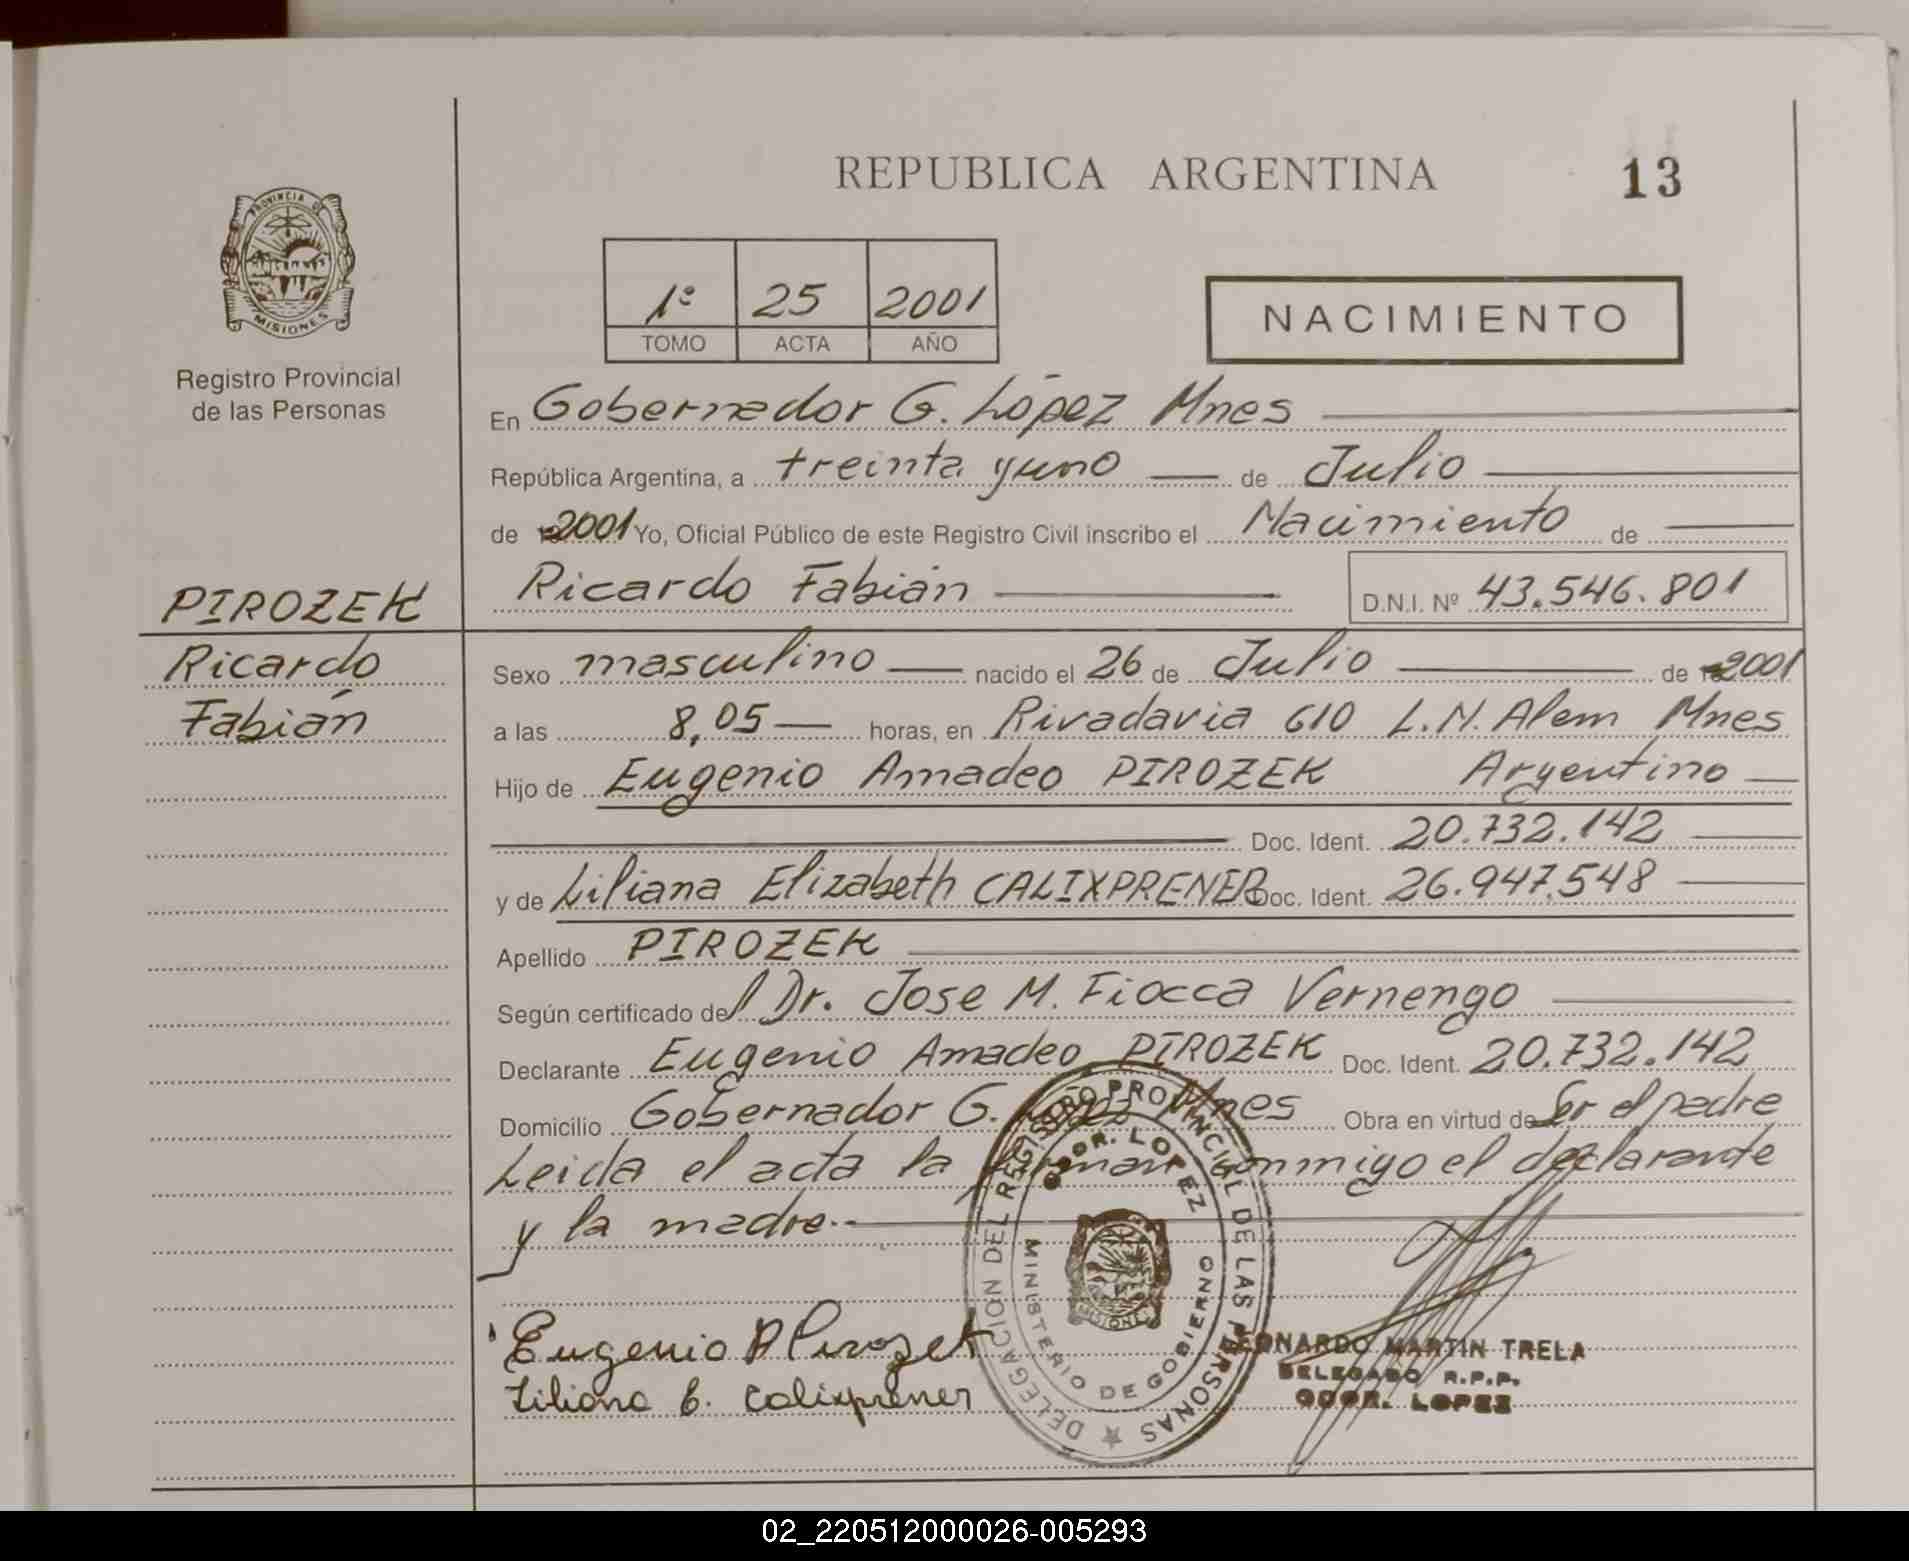 REPUBLICA ARGENTINA
13
PROVINCIA DE
MISIONES
Registro Provincial
de las Personas
1º 25 2001
TOMO ACTA AÑO
NACIMIENTO
En Gobernador G. López Mnes
República Argentina, a treinta y uno de Julio
de 2001 Yo, Oficial Público de este Registro Civil inscribo el Nacimiento de
Ricardo Fabián D.N.I. Nº 43.546.801
PIROZEK
Ricardo
Fabián
Sexo masculino nacido el 26 de Julio de 2001
a las 8,05 horas, en Rivadavia 610 L.N. Alem Mnes
Hijo de Eugenio Amadeo PIROZEK Argentino
Doc. Ident. 20.732.142
y de Liliana Elizabeth CALIXPRENER Doc. Ident. 26.947.548
Apellido PIROZEK
Según certificado del Dr. Jose M. Fiocca Vernengo
Declarante Eugenio Amadeo PIROZEK Doc. Ident. 20.732.142
Domicilio Gobernador G. López Mnes Obra en virtud de Ser el padre
Leida el acta la firman conmigo el declarante
y la madre.-
DELEGACION DEL REGISTRO PROVINCIAL DE LAS PERSONAS
GDOR. LOPEZ
MINISTERIO DE GOBIERNO
MISIONES
Eugenio A Pirozek
Liliana E. Calixprener
LEONARDO MARTIN TRELA
DELEGADO R.P.P.
GDOR. LOPEZ
02_220512000026-005293